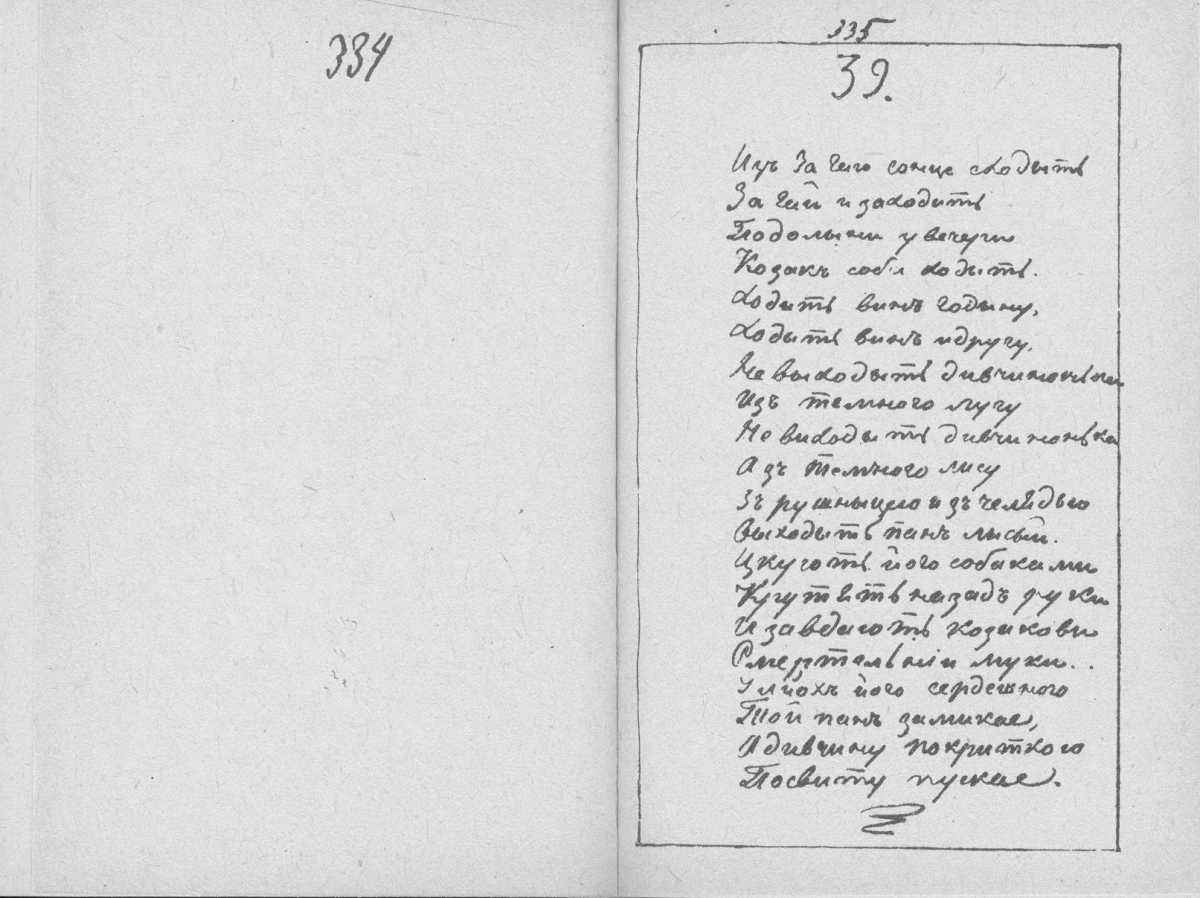 334
335
39.
Изъ За гаю сонце сходыть
За гай и заходить
По долыни у вечери
Козакъ соби ходыть.
Ходить винъ годину,
Ходыть винъ и другу,
Не выходыть дивчинонька
Изъ темного лугу
Не виходыть дивчинонька
А зъ темного лису
Зъ рушныцею и зъ челядью
Выходыть панъ лысый.
Цкують його собаками
Крутять назадъ руки
И завдають козакови
Смертельніи муки..
У лйохъ його сердешного
Той панъ замикае,
А дивчину покриткою
По свиту пускае.